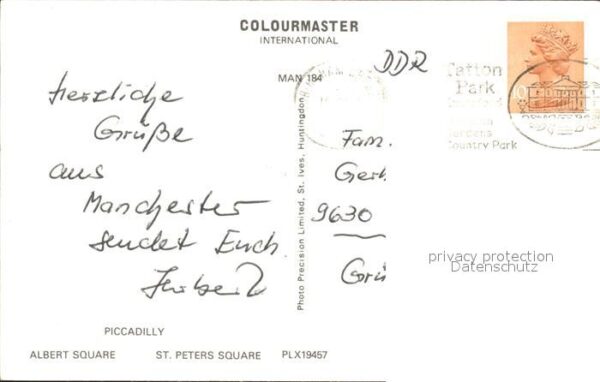 COLOURMASTER
INTERNATIONAL
MAN 184
DDR
Tatton
Park
Gardens
Country Park
Herzliche
Grüße
aus
Manchester
sendet Euch
Photo Precision Limited, St. Ives, Huntingdon
Fam.
Ger
9630
Grü
privacy protection
Datenschutz
PICCADILLY
ALBERT SQUARE ST. PETERS SQUARE PLX19457